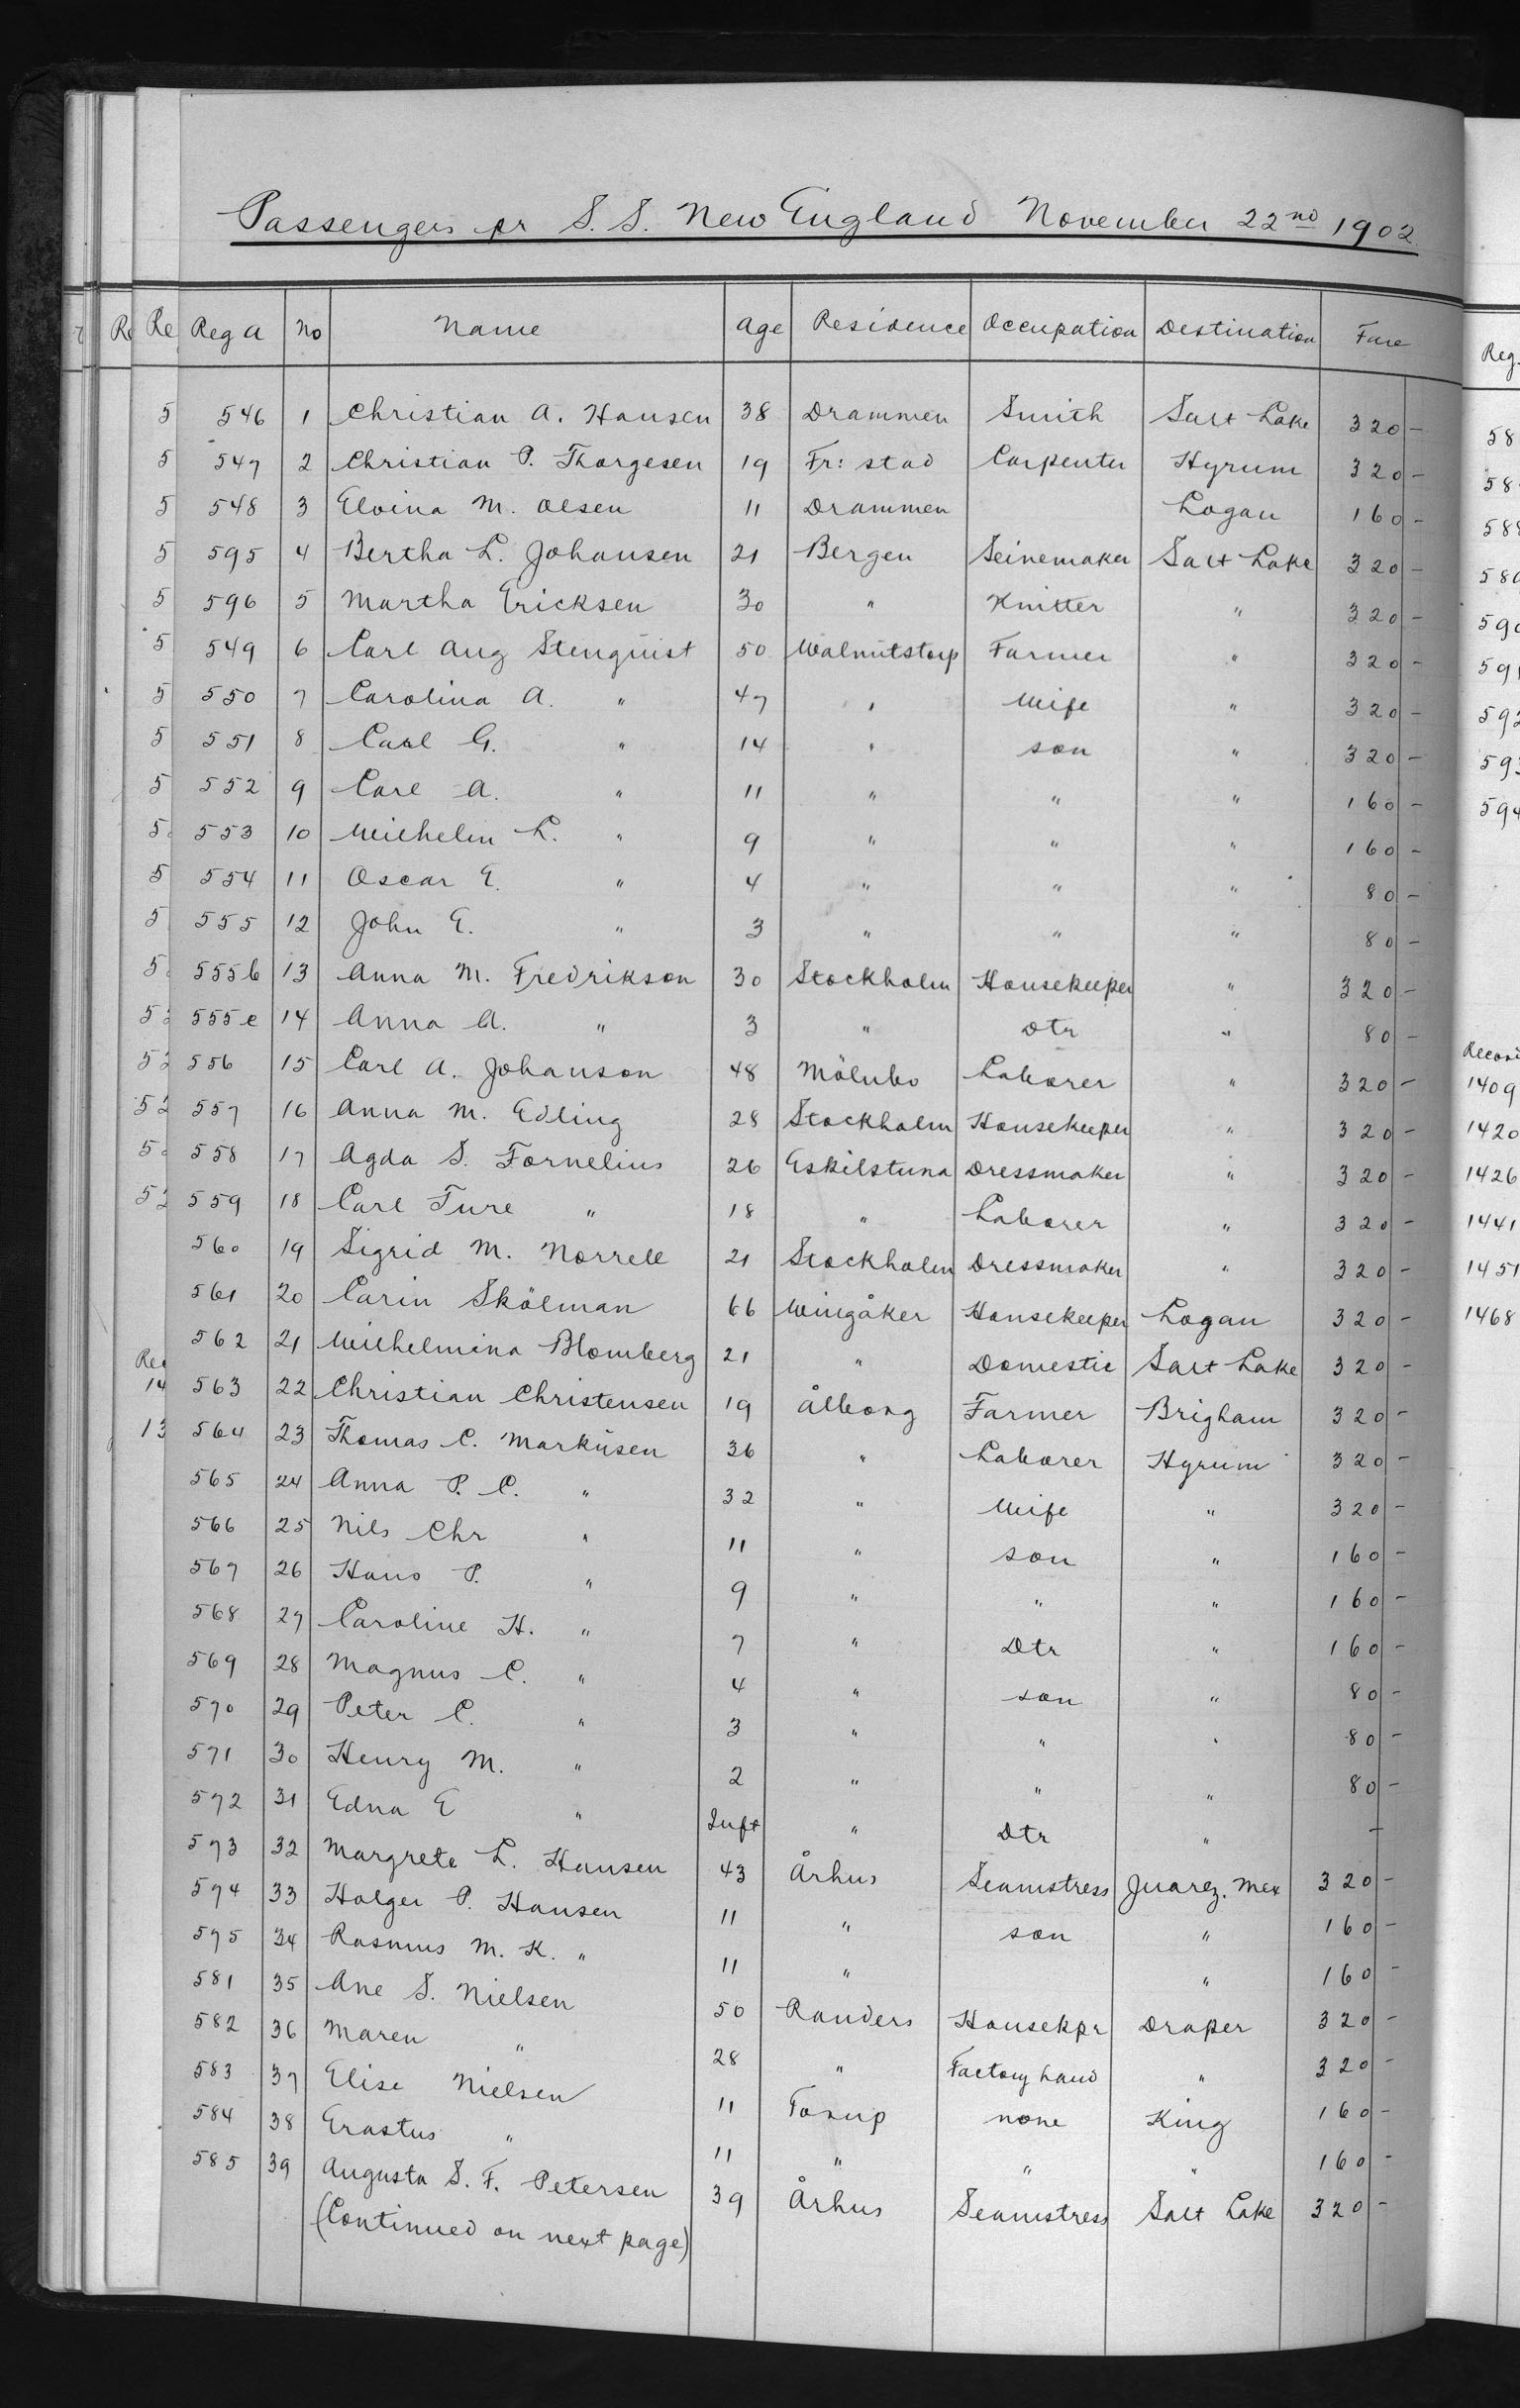 Passengers pr S. S. New England November 22nd 1902.
Reg a No Name Age Residence Occupation Destination Fare
546 1 Christian A. Hansen 38 Drammen Smith Salt Lake 320 -
547 2 Christian P. Thorgesen 19 Fr: stad Carpenter Hyrum 320 -
548 3 Elvina M. Olsen 11 Drammen Logan 160 -
595 4 Bertha L. Johansen 21 Bergen Seinemaker Salt Lake 320 -
596 5 Martha Ericksen 30 " Knitter " 320 -
549 6 Carl Aug Stenquist 50 Walnutstorp Farmer " 320 -
550 7 Carolina A. " 47 " Wife " 320 -
551 8 Carl G. " 14 " son " 320 -
552 9 Carl A. " 11 " " " 160 -
553 10 Wilhelm L. " 9 " " " 160 -
554 11 Oscar E. " 4 " " " 80 -
555 12 John E. " 3 " " " 80 -
555b 13 Anna M. Fredrikson 30 Stockholm Housekeeper " 320 -
555c 14 Anna A. " 3 " Dtr " 80 -
556 15 Carl A. Johanson 48 Mölnbo Laborer " 320 -
557 16 Anna M. Edling 28 Stockholm Housekeeper " 320 -
558 17 Agda S. Fornelius 26 Eskilstuna Dressmaker " 320 -
559 18 Carl Ture " 18 " Laborer " 320 -
560 19 Sigrid M. Norrell 21 Stockholm Dressmaker " 320 -
561 20 Carin Skölman 66 Wingåker Housekeeper Logan 320 -
562 21 Wilhelmina Blomberg 21 " Domestic Salt Lake 320 -
563 22 Christian Christensen 19 Ålborg Farmer Brigham 320 -
564 23 Thomas C. Markusen 36 " Laborer Hyrum 320 -
565 24 Anna P. C. " 32 " Wife " 320 -
566 25 Nils Chr " 11 " son " 160 -
567 26 Hans P. " 9 " " " 160 -
568 27 Caroline H. " 7 " Dtr " 160 -
569 28 Magnus C. " 4 " son " 80 -
570 29 Peter C. " 3 " " " 80 -
571 30 Henry M. " 2 " " " 80 -
572 31 Edna E " Inft " Dtr " -
573 32 Margrete L. Hansen 43 Århus Seamstress Juarez. Mex 320 -
574 33 Holger P. Hansen 11 " son " 160 -
575 34 Rasmus M. K. " 11 " " 160 -
581 35 Ane S. Nielsen 50 Randers Housekpr Draper 320 -
582 36 Maren " 28 " Factory hand " 320 -
583 37 Elise Nielsen 11 Torup none King 160 -
584 38 Erastus " 11 " " " 160 -
585 39 Augusta S. F. Petersen 39 Århus Seamstress Salt Lake 320 -
(Continued on next page)
Reg.
594
1409
1420
1426
1441
1451
1468